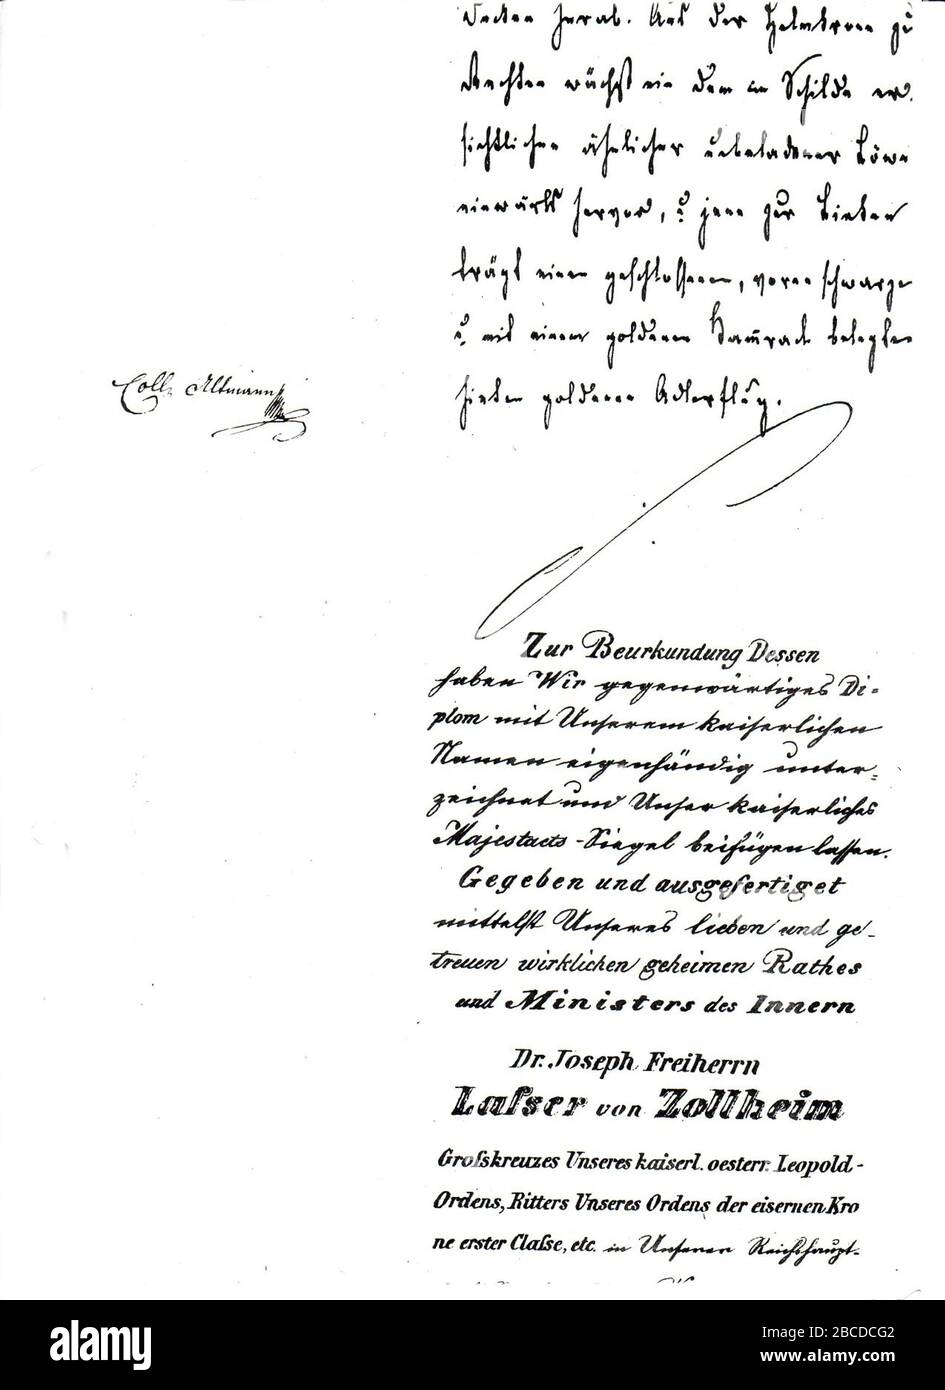 Decken herab. Aus der Helmkrone zu
Rechten wächst ein dem im Schilde er-
sichtlichen ähnlicher unbeladener Löwe
einwärts hervor, u. jene zur Linken
trägt einen geschlossenen, vorne schwarzen
u. mit einem goldenen Kam̅rade belegten
hinten goldenen Adlerflug.
Coll. Altmann
Zur Beurkundung Dessen
haben Wir gegenwärtiges Di-
plom mit Unserem kaiserlichen
Namen eigenhändig unter-
zeichnet und Unser kaiserliches
Majestaets-Siegel beifügen lassen.
Gegeben und ausgefertiget
mittelst Unseres lieben und ge-
treuen wirklichen geheimen Rathes
und Ministers des Innern
Dr. Joseph Freiherrn
Laſser von Zollheim
Groſskreuzes Unseres kaiserl. oesterr. Leopold-
Ordens, Ritters Unseres Ordens der eisernen Kro
ne erster Claſse, etc. in Unserer Reichshaupt-
alamy
Image ID: 2BCDCG2
www.alamy.com